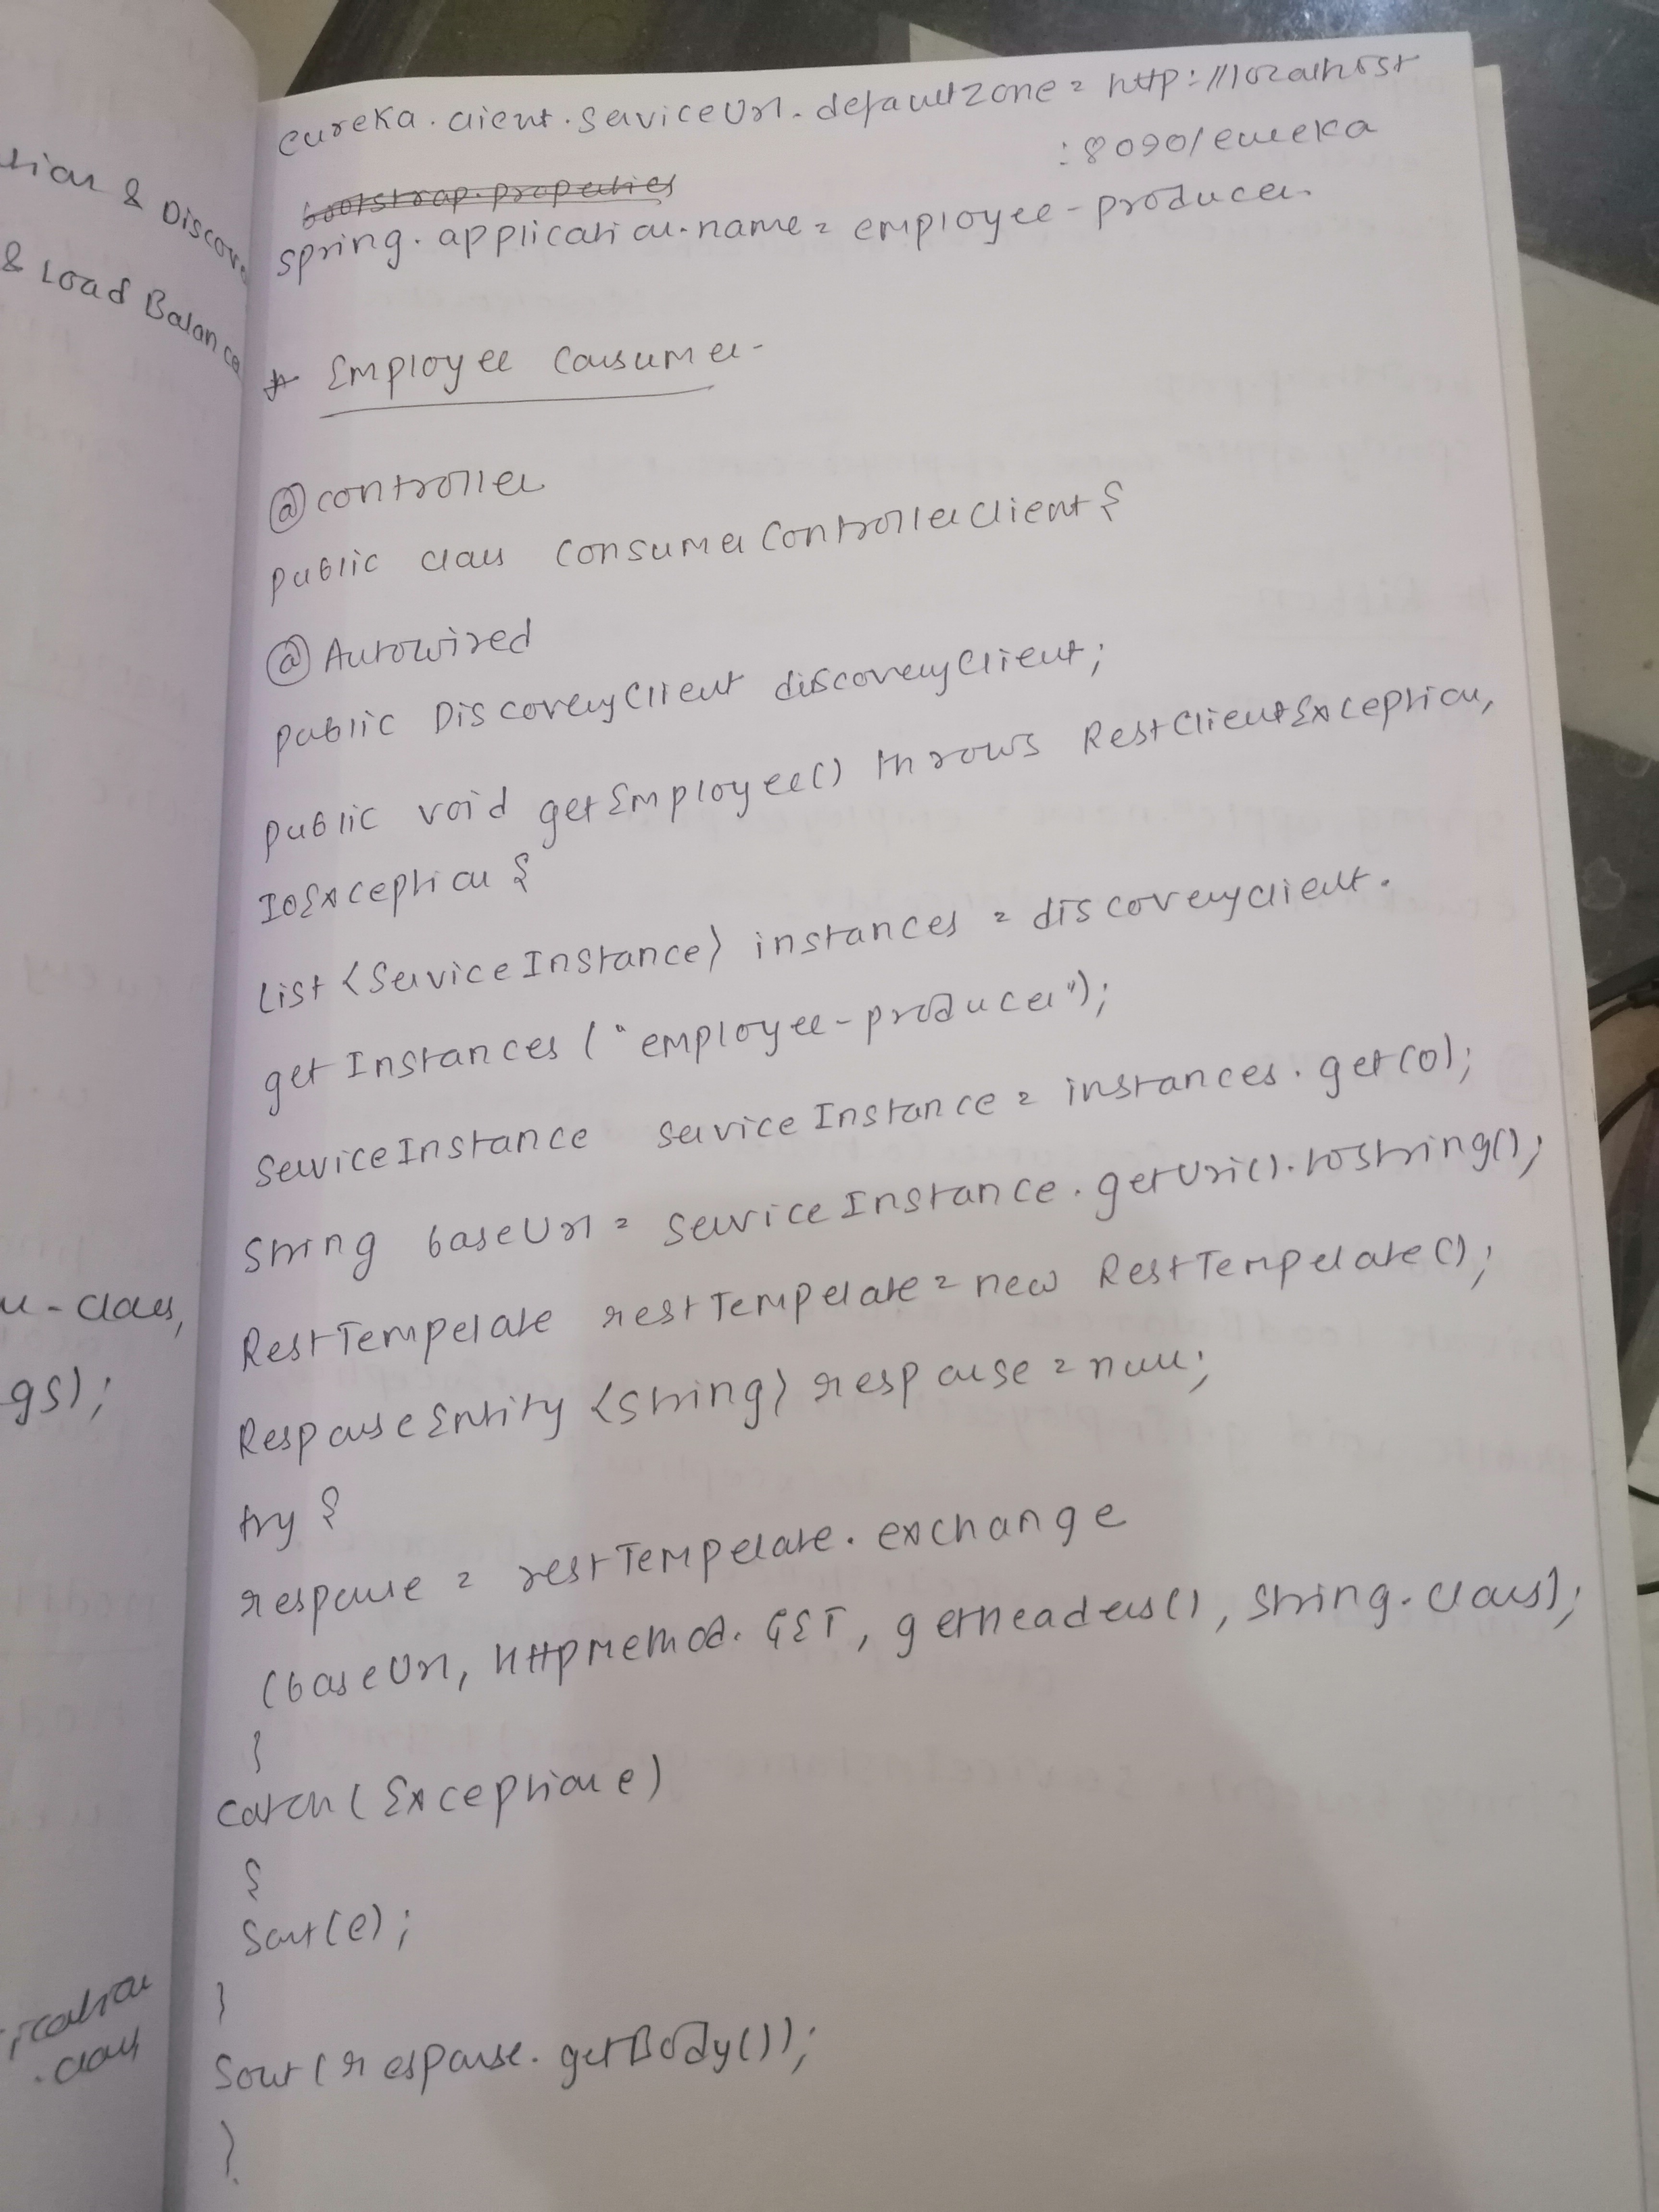 eureka.client.serviceUrl.defaultZone = http://localhost
:8090/eureka
bootstrap.properties
spring.application.name = employee-producer.
* Employee Consumer-
@controller
public class ConsumerControllerClient {
@Autowired
public DiscoveryClient discoveryClient;
public void getEmployee() throws RestClientException,
IOException {
List <ServiceInstance> instances = discoveryclient.
getInstances ("employee-producer");
ServiceInstance serviceInstance = instances.get(0);
String baseUrl = serviceInstance.getUri().toString();
RestTempelate restTempelate = new RestTempelate();
ResponseEntity <String> response = null;
try {
response = restTempelate.exchange
(baseUrl, HttpMethod.GET, getheaders(), String.class);
}
catch (Exception e)
{
Sout(e);
}
Sout(response.getBody());
}
& Discov
& Load Balance
- class,
gs);
.class